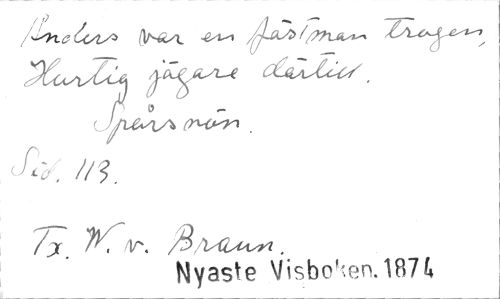 Anders var en fästman trogen,
Hurtig jägare därtill.
Spårsnön.
Sid. 113.
Tx. W. v. Braun.
Nyaste Visboken. 1874